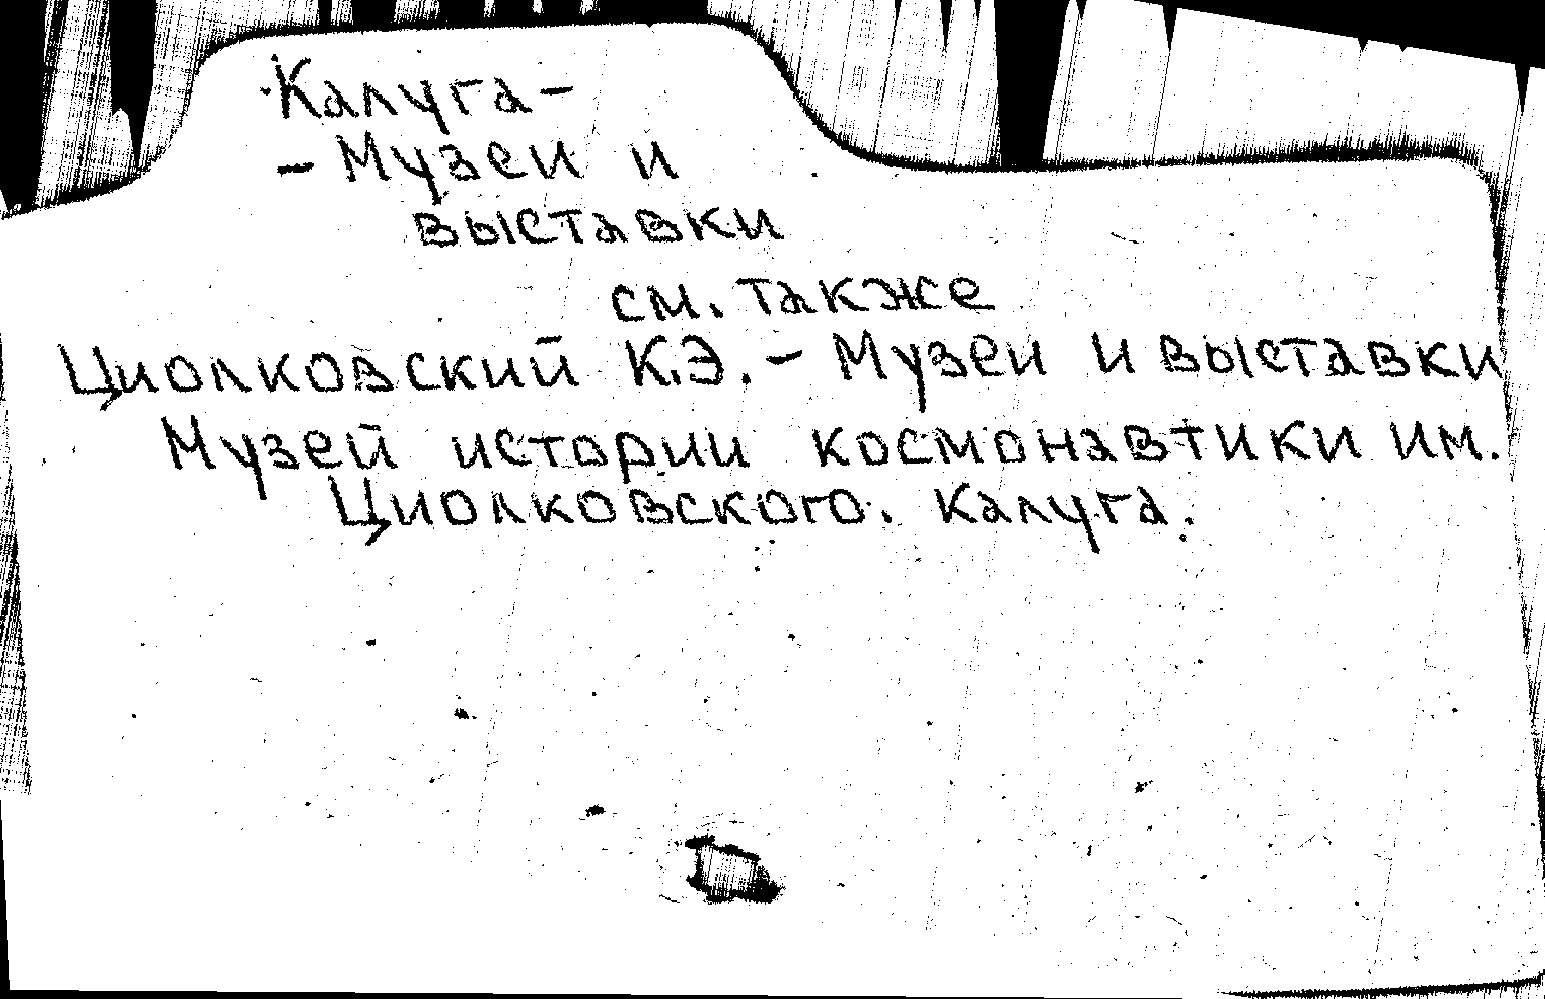 Калуга –
– Музеи и
выставки
см. также
Циолковский К.Э. – Музеи и выставки
Музей истории космонавтики им.
Циолковского. Калуга.